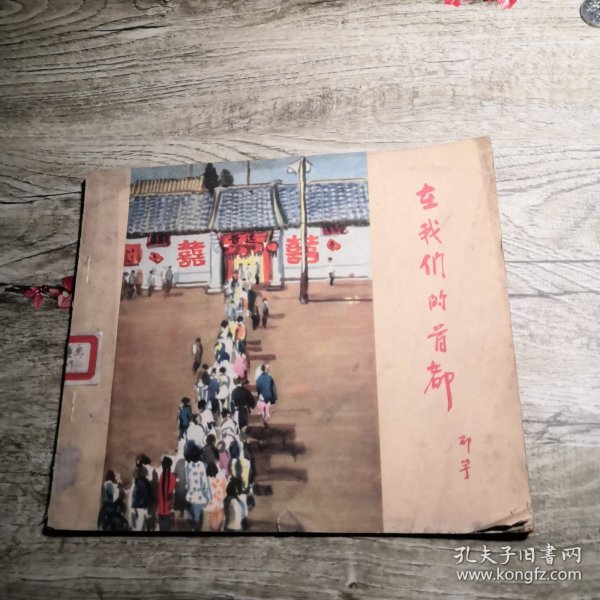 在我们的首都
邵宇
囍
囍
孔夫子旧書网
www.kongfz.com